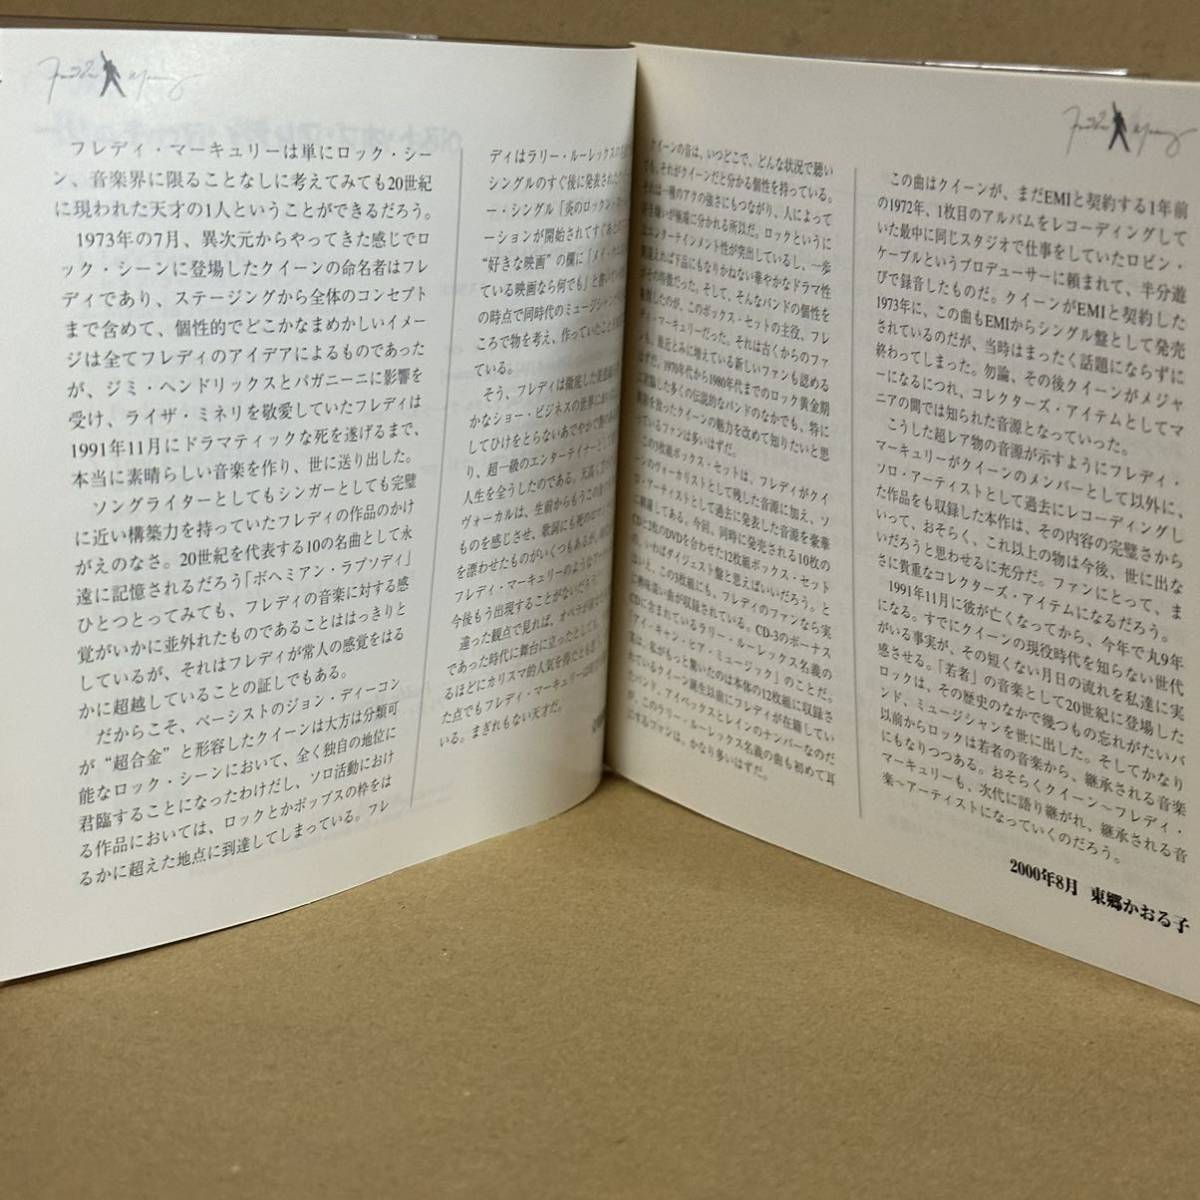 フレディ・マーキュリーは単にロック・シー
ン、音楽界に限ることなしに考えてみても20世紀
に現われた天才の1人ということができるだろう。
1973年の7月、異次元からやってきた感じでロ
ック・シーンに登場したクイーンの命名者はフレ
ディであり、ステージングから全体のコンセプト
まで含めて、個性的でどこかなまめかしいイメー
ジは全てフレディのアイデアによるものであった
が、ジミ・ヘンドリックスとパガニーニに影響を
受け、ライザ・ミネリを敬愛していたフレディは
1991年11月にドラマティックな死を遂げるまで、
本当に素晴らしい音楽を作り、世に送り出した。
ソングライターとしてもシンガーとしても完璧
に近い構築力を持っていたフレディの作品のかけ
がえのなさ。20世紀を代表する10の名曲として永
遠に記憶されるだろう「ボヘミアン・ラプソディ」
ひとつとってみても、フレディの音楽に対する感
覚がいかに並外れたものであることははっきりと
しているが、それはフレディが常人の感覚をはる
かに超越していることの証しでもある。
だからこそ、ベーシストのジョン・ディーコン
が“超合金”と形容したクイーンは大方は分類可
能なロック・シーンにおいて、全く独自の地位に
君臨することになったわけだし、ソロ活動におけ
る作品においては、ロックとかポップスの枠をは
るかに超えた地点に到達してしまっている。フレ
ディはラリー・ルーレックスの
シングルのすぐ後に発表された
ー・シングル「炎のロックン・
ーションが開始されてすぐ
“好きな映画”の欄に「メイ・ウエ
ている映画なら何でも」と書い
の時点で同時代のミュージシャン
ころで物を考え、作っていたこと
ている。
そう、フレディは徹底した
かなショー・ビジネスの世界に
してひけをとらないあでやかで
り、超一級のエンターテイナーとして
人生を全うしたのである。天高く
ヴォーカルは、生前からもうこの
ものを感じさせ、歌詞にも死の
を漂わせたものがいくつもあるが、
フレディ・マーキュリーのようなアー
今後もう出現することがないだろう。
違った観点で見れば、オペラが
であった時代に舞台に立ったとしても、
るほどにカリスマ的人気を得たとも思う。
た点でもフレディ・マーキュリーは
いる。まぎれもない天才だ。
クイーンの音は、いつどこで、どんな状況で聴い
ても、それがクイーンだと分かる個性を持っている。
それは一種のアクの強さにもつながり、人によって
好き嫌いが極端に分かれる所以だ。ロックというに
はエンターテインメント性が突出しているし、一歩
間違えば下品にもなりかねない華やかなドラマ性
がその特徴だった。そして、そんなバンドの個性を
のが、このボックス・セットの主役、フレ
ディ・マーキュリーだった。それは古くからのファ
ンも、最近とみに増えている新しいファンも認める
はずだ。1970年代から1980年代までのロック黄金期
に活躍した多くの伝説的なバンドのなかでも、特に
を放ったクイーンの魅力を改めて知りたいと思
っているファンは多いはずだ。
この3枚組ボックス・セットは、フレディがクイ
ーンのヴォーカリストとして残した音源に加え、ソ
ロ・アーティストとして過去に発表した音源を豪華
に網羅してある。今回、同時に発売される10枚の
CDと2枚のDVDを合わせた12枚組ボックス・セット
の、いわばダイジェスト盤と思えばいいだろう。と
はいえ、この3枚組にも、フレディのファンなら実
に興味深い曲が収録されている。CD-3のボーナス
CDに含まれているラリー・ルーレックス名義の
「アイ・キャン・ヒア・ミュージック」のことだ。
実は、私がもっと驚いたのは本体の12枚組に収録さ
れているクイーン誕生以前にフレディが在籍してい
たバンド、アイベックスとレインのナンバーなのだ
が、このラリー・ルーレックス名義の曲も初めて耳
にするファンは、かなり多いはずだ。
この曲はクイーンが、まだEMIと契約する1年前
の1972年、1枚目のアルバムをレコーディングして
いた最中に同じスタジオで仕事をしていたロビン・
ケーブルというプロデューサーに頼まれて、半分遊
びで録音したものだ。クイーンがEMIと契約した
1973年に、この曲もEMIからシングル盤として発売
されているのだが、当時はまったく話題にならずに
終わってしまった。勿論、その後クイーンがメジャ
ーになるにつれ、コレクターズ・アイテムとしてマ
ニアの間では知られた音源となっていった。
こうした超レア物の音源が示すようにフレディ・
マーキュリーがクイーンのメンバーとして以外に、
ソロ・アーティストとして過去にレコーディングし
た作品をも収録した本作は、その内容の完璧さから
いって、おそらく、これ以上の物は今後、世に出な
いだろうと思わせるに充分だ。ファンにとって、ま
さに貴重なコレクターズ・アイテムになるだろう。
1991年11月に彼が亡くなってから、今年で丸9年
になる。すでにクイーンの現役時代を知らない世代
がいる事実が、その短くない月日の流れを私達に実
感させる。「若者」の音楽として20世紀に登場した
ロックは、その歴史のなかで幾つもの忘れがたいバ
ンド、ミュージシャンを世に出した。そしてかなり
以前からロックは若者の音楽から、継承される音楽
にもなりつつある。おそらくクイーン～フレディ・
マーキュリーも、次代に語り継がれ、継承される音
楽～アーティストになっていくのだろう。
2000年8月 東郷かおる子